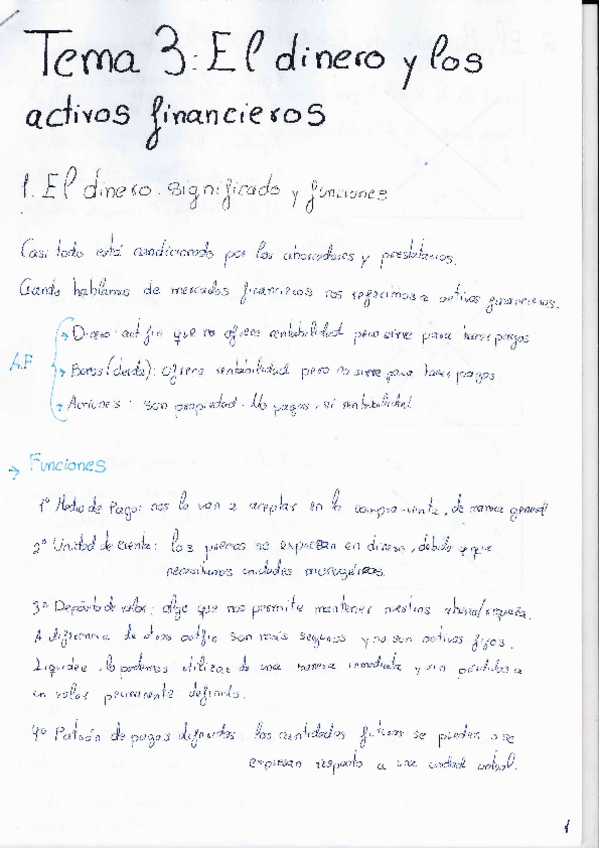 Tema 3: El dinero y los
activos financieros
1. El dinero. significado y funciones
Casi todo está condicionado por los ahorradores y prestatarios.
Cuando hablamos de mercados financieros nos referimos a activos financieros.
A.F
→ Dinero: act fin que no ofrece rentabilidad pero sirve para hacer pagos
→ Bonos (deuda): ofrece rentabilidad pero no sirve para hacer pagos
→ Acciones: son propiedad. No pagos, sí rentabilidad
→ Funciones
1º Medio de Pago: nos lo van a aceptar en la compra-venta, de manera general
2º Unidad de cuenta: los precios se expresan en dinero, debido a que
necesitamos unidades
3º Depósito de valor: algo que nos permite mantener nuestros
A diferencia de otros act fin son más seguros y no son activos fijos.
Liquidez, lo podemos utilizar de una manera inmediata y sin pérdidas a
un valor definido.
4º Patrón de pagos diferidos: las cantidades futuras se pueden o se
expresan respecto a una unidad actual.
1